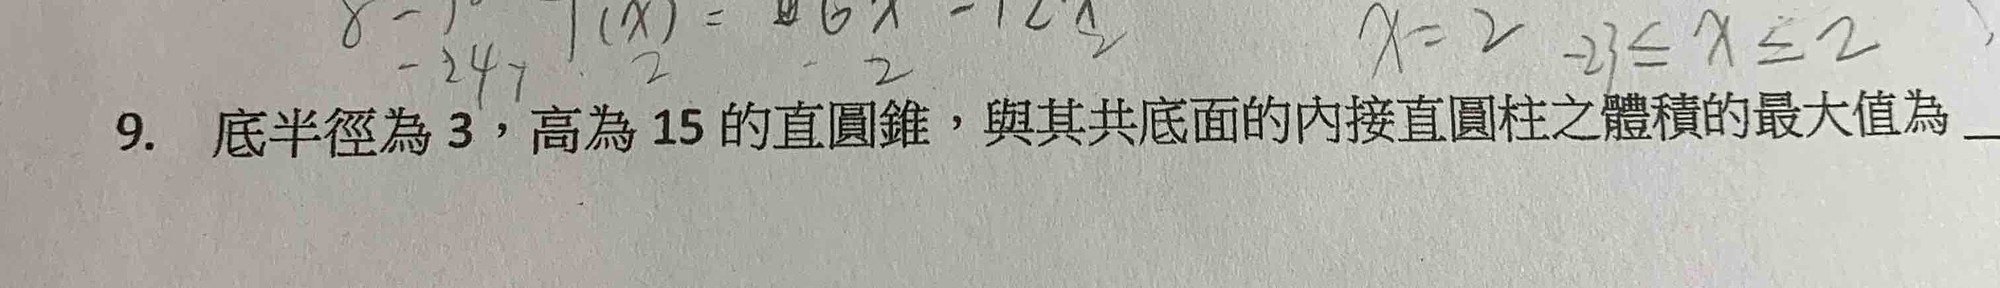 f(x) = 6x - 12x
x = 2  -2 ≤ x ≤ 2
-24  2  2
9. 底半徑為 3，高為 15 的直圓錐，與其共底面的內接直圓柱之體積的最大值為